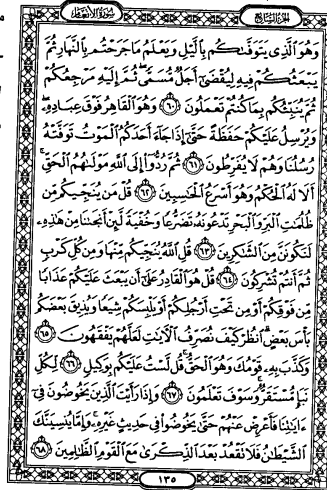 الجزء السابع سورة الأنعام
وَهُوَ ٱلَّذِى يَتَوَفَّىٰكُم بِٱلَّيْلِ وَيَعْلَمُ مَا جَرَحْتُم بِٱلنَّهَارِ ثُمَّ
يَبْعَثُكُمْ فِيهِ لِيُقْضَىٰٓ أَجَلٌ مُّسَمًّى ثُمَّ إِلَيْهِ مَرْجِعُكُمْ
ثُمَّ يُنَبِّئُكُم بِمَا كُنتُمْ تَعْمَلُونَ ٦٠ وَهُوَ ٱلْقَاهِرُ فَوْقَ عِبَادِهِۦ
وَيُرْسِلُ عَلَيْكُمْ حَفَظَةً حَتَّىٰٓ إِذَا جَآءَ أَحَدَكُمُ ٱلْمَوْتُ تَوَفَّتْهُ
رُسُلُنَا وَهُمْ لَا يُفَرِّطُونَ ٦١ ثُمَّ رُدُّوٓا۟ إِلَى ٱللَّهِ مَوْلَىٰهُمُ ٱلْحَقِّ
أَلَا لَهُ ٱلْحُكْمُ وَهُوَ أَسْرَعُ ٱلْحَـٰسِبِينَ ٦٢ قُلْ مَن يُنَجِّيكُم مِّن
ظُلُمَـٰتِ ٱلْبَرِّ وَٱلْبَحْرِ تَدْعُونَهُۥ تَضَرُّعًا وَخُفْيَةً لَّئِنْ أَنجَىٰنَا مِنْ هَـٰذِهِۦ
لَنَكُونَنَّ مِنَ ٱلشَّـٰكِرِينَ ٦٣ قُلِ ٱللَّهُ يُنَجِّيكُم مِّنْهَا وَمِن كُلِّ كَرْبٍ
ثُمَّ أَنتُمْ تُشْرِكُونَ ٦٤ قُلْ هُوَ ٱلْقَادِرُ عَلَىٰٓ أَن يَبْعَثَ عَلَيْكُمْ عَذَابًا
مِّن فَوْقِكُمْ أَوْ مِن تَحْتِ أَرْجُلِكُمْ أَوْ يَلْبِسَكُمْ شِيَعًا وَيُذِيقَ بَعْضَكُم
بَأْسَ بَعْضٍ ٱنظُرْ كَيْفَ نُصَرِّفُ ٱلْـَٔايَـٰتِ لَعَلَّهُمْ يَفْقَهُونَ ٦٥
وَكَذَّبَ بِهِۦ قَوْمُكَ وَهُوَ ٱلْحَقُّ قُل لَّسْتُ عَلَيْكُم بِوَكِيلٍ ٦٦ لِّكُلِّ
نَبَإٍ مُّسْتَقَرٌّ وَسَوْفَ تَعْلَمُونَ ٦٧ وَإِذَا رَأَيْتَ ٱلَّذِينَ يَخُوضُونَ فِىٓ
ءَايَـٰتِنَا فَأَعْرِضْ عَنْهُمْ حَتَّىٰ يَخُوضُوا۟ فِى حَدِيثٍ غَيْرِهِۦ وَإِمَّا يُنسِيَنَّكَ
ٱلشَّيْطَـٰنُ فَلَا تَقْعُدْ بَعْدَ ٱلذِّكْرَىٰ مَعَ ٱلْقَوْمِ ٱلظَّـٰلِمِينَ ٦٨
١٣٥